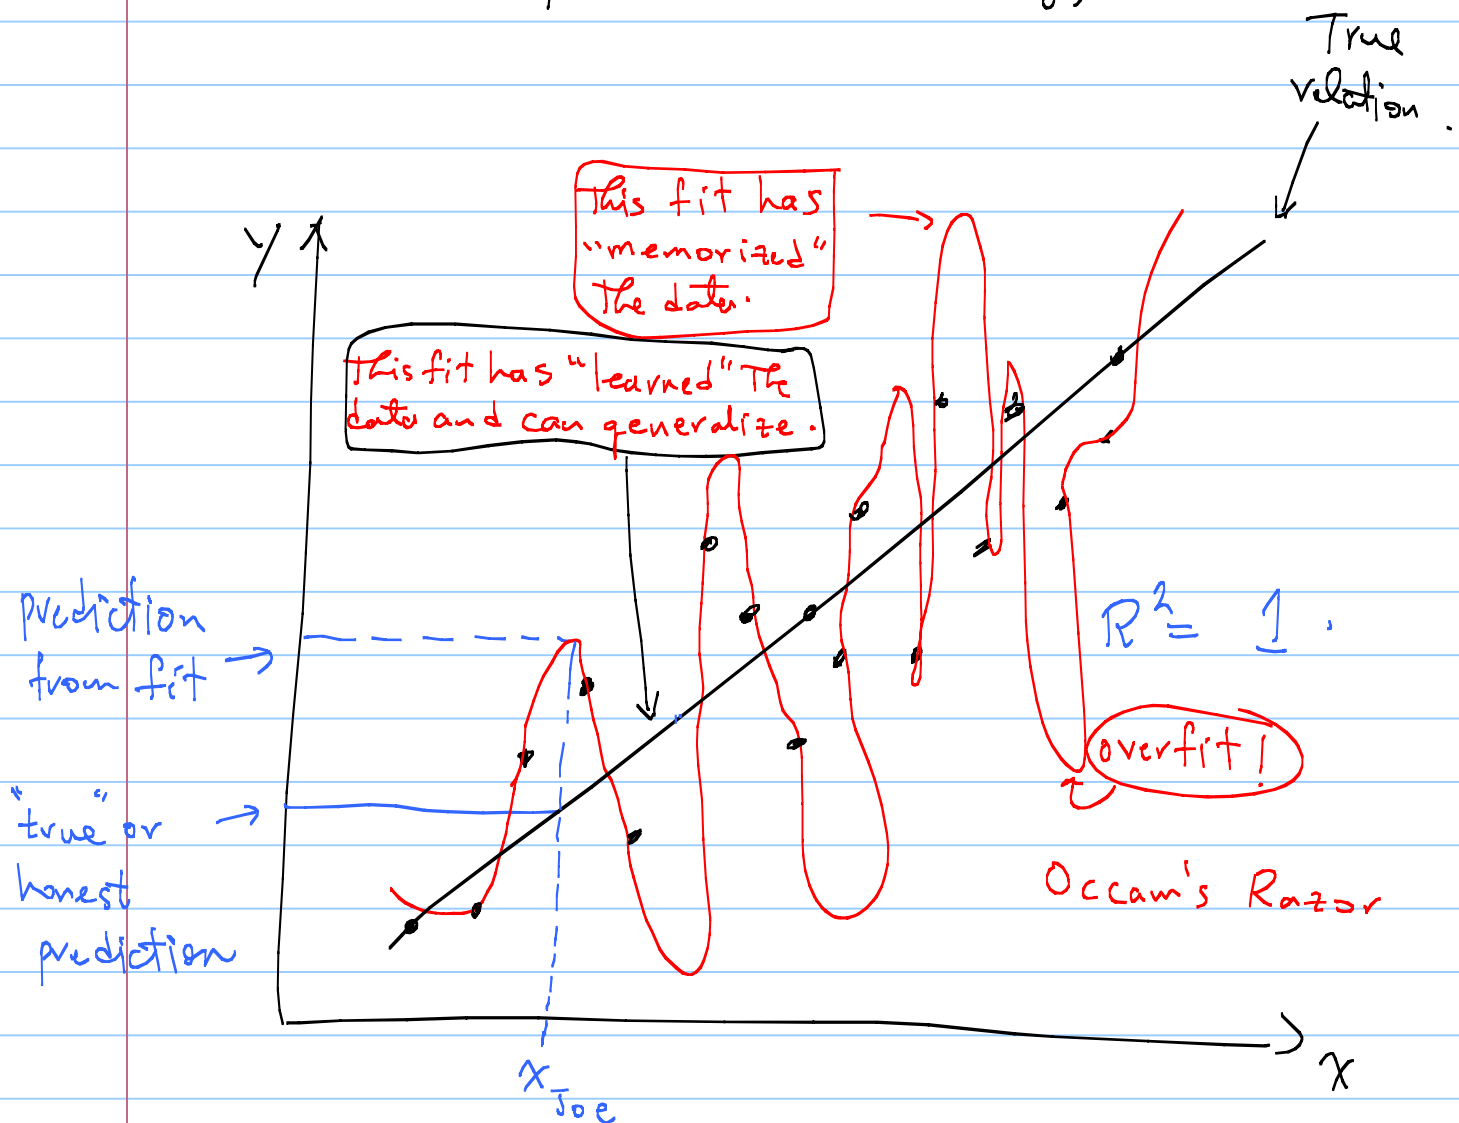 True
relation.
Y
This fit has
"memorized"
The data.
This fit has "learned" The
data and can generalize.
prediction
from fit
R² = 1.
overfit!
"true" or
honest
prediction
Occam's Razor
x
x Joe